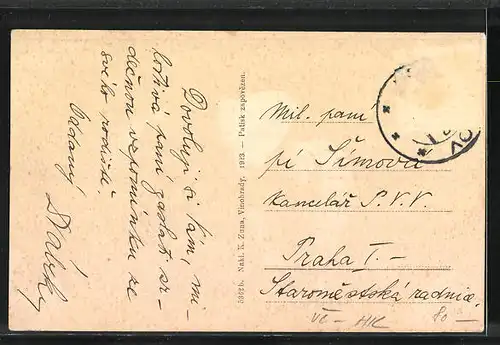 Dovoluji si Vám, mi-
lostivá paní zaslat sr-
dečnou vzpomínku ze
svého rodiště.
Oddaný
5362b. Nakl. K. Zinna, Vinohrady, 1923. — Patisk zapovězen.
Mil. paní
pí Šímová
kancelář S.V.V.
Praha I. —
Staroměstská radnice.
VČ — HK 80 —
OV